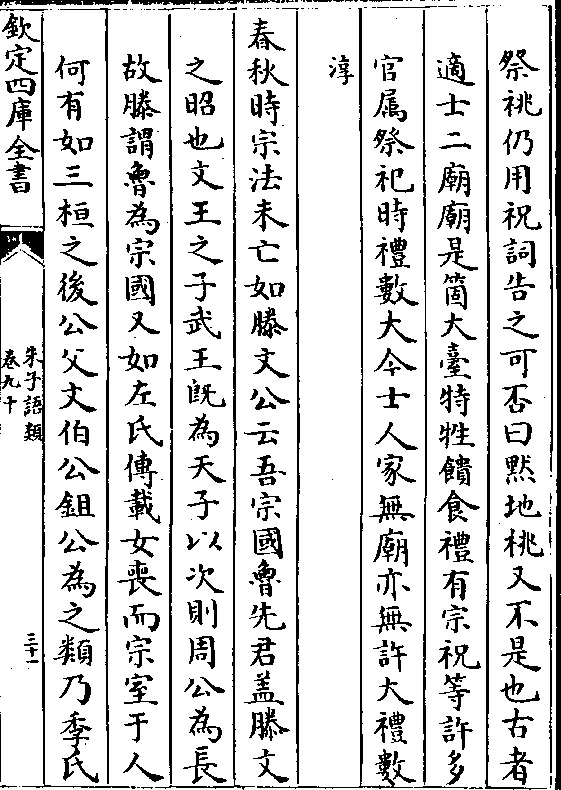 祭祧仍用祝詞告之可否曰黙地祧又不是也古者
適士二廟廟是箇大臺特牲饋食禮有宗祝等許多
官属祭祀時禮數大今士人家無廟亦無許大禮數
淳
春秋時宗法未亡如滕文公云吾宗國魯先君盖滕文
之昭也文王之子武王既為天子以次則周公為長
故滕謂魯為宗國又如左氏傳載女喪而宗室于人
何有如三桓之後公父文伯公鉏公為之類乃季氏
欽定四庫全書
朱子語類
卷九十
三十一